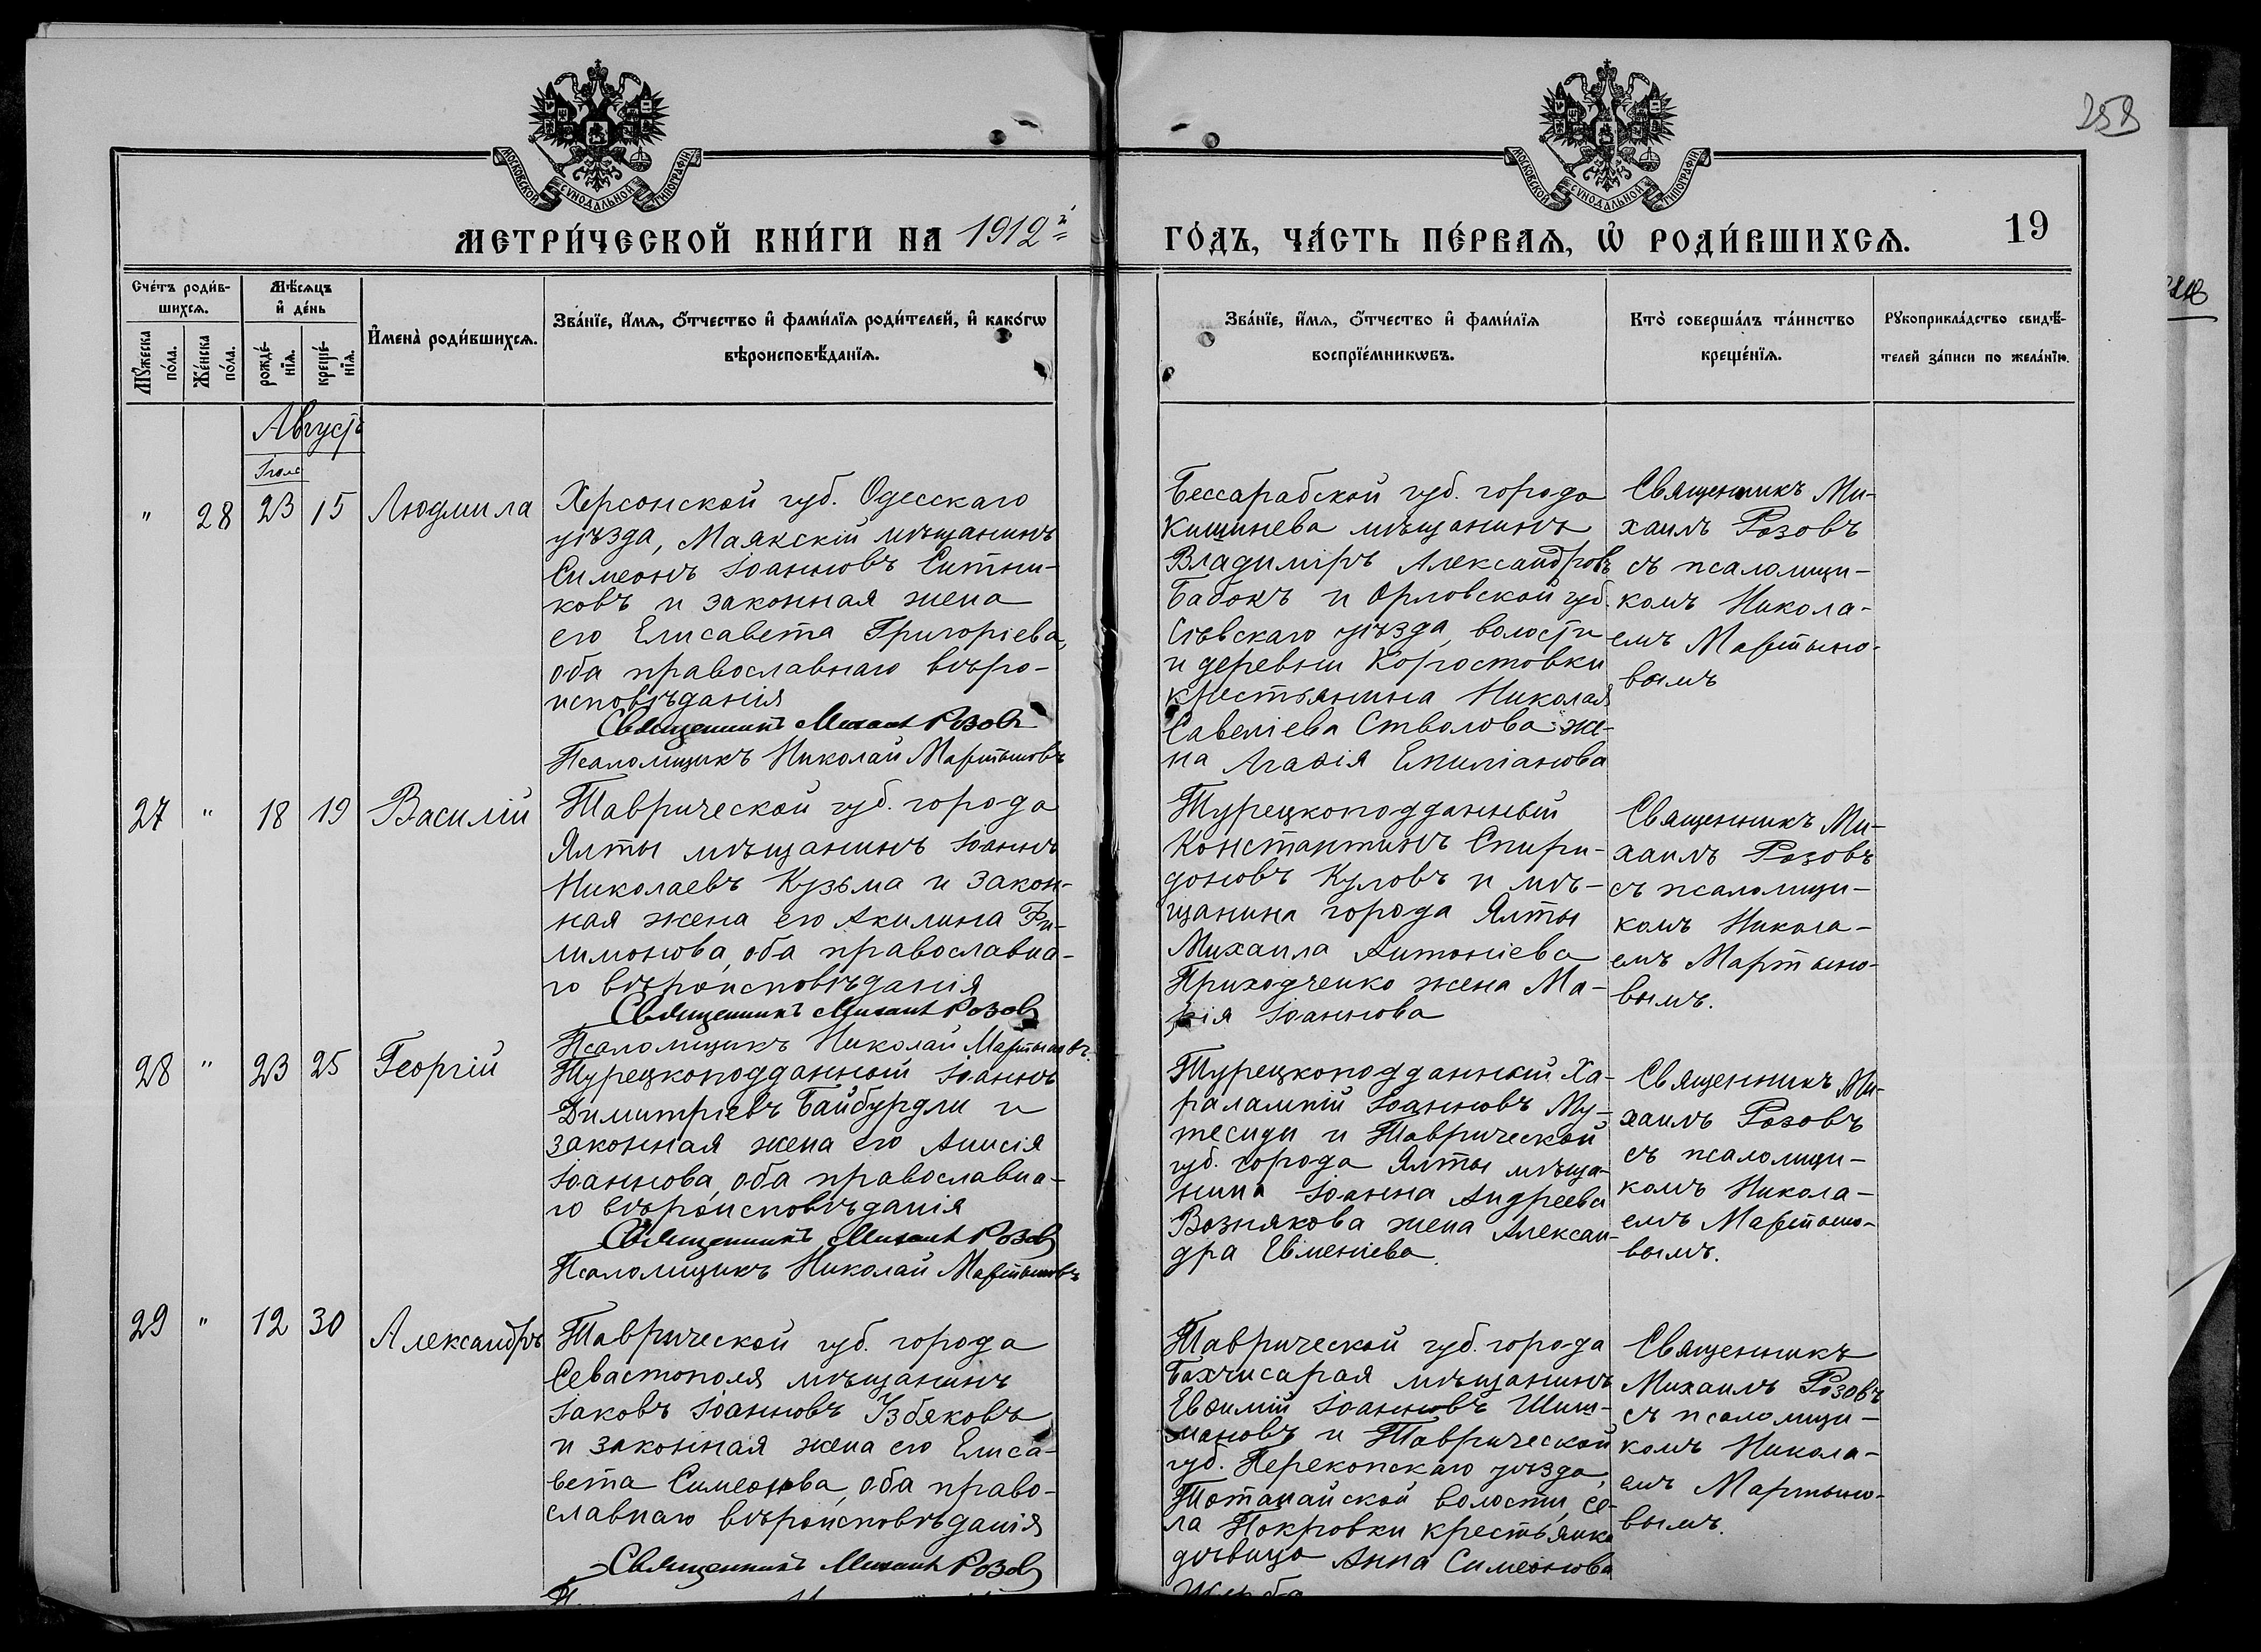 258
МОСКОВСКОЙ СУНОДАЛЬНОЙ ТИПОГРАФІИ
МОСКОВСКОЙ СУНОДАЛЬНОЙ ТИПОГРАФІИ
МЕТРИ́ЧЕСКОЙ КНИ́ГИ НА 1912й
ГО́ДЪ, ЧА́СТЬ ПЕ́РВАѦ, Ѡ҆ РОДИ́ВШИХСѦ.
19
Сче́тъ роди́в-
шихсѧ.
Мѣ́сяцъ
и҆ де́нь
Мꙋ́жеска по́ла.
Же́нска по́ла.
рожде́-
нїѧ.
креще́-
нїѧ.
И҆мена̀ роди́вшихсѧ.
Зва́нїе, и҆́мѧ, ѻ҆́тчество и҆ фами́лїѧ роди́телей, и҆ како́гѡ
вѣроисповѣ́данїѧ.
Зва́нїе, и҆́мѧ, ѻ҆́тчество и҆ фами́лїѧ
воспрїе́мникѡвъ.
Кто̀ соверша́лъ та́инство
креще́нїѧ.
Рꙋкоприкла́дство свидѣ́-
телей за́писи по жела́нїю.
Августъ
Іюля
" 28 23 15 Людмила
Херсонской губ. Одесскаго
уѣзда, Маякскій мѣщанинъ
Симеонъ Іоанновъ Ситни-
ковъ и законная жена
его Елисавета Григоріева,
оба православнаго вѣро-
исповѣданія
Священникъ Михаилъ Розовъ
Псаломщикъ Николай Мартыновъ
Бессарабской губ. города
Кишинева мѣщанинъ
Владиміръ Александровъ
Бабокъ и Орловской губ.
Сѣвскаго уѣзда, волости
и деревни Коростовки
крестьянина Николая
Савеліева Стволова же-
на Агаѳія Емиліанова
Священникъ Ми-
хаилъ Розовъ
съ псаломщи-
комъ Никола-
емъ Мартыно-
вымъ
27 " 18 19 Василій
Таврической губ. города
Ялты мѣщанинъ Іоаннъ
Николаевъ Кузьма и закон-
ная жена его Акилина Фи-
лимонова, оба православна-
го вѣроисповѣданія
Священникъ Михаилъ Розовъ
Псаломщикъ Николай Мартыновъ.
Турецкоподданный
Константинъ Спири-
доновъ Куловъ и мѣ-
щанина города Ялты
Михаила Антоніева
Приходченко жена Ма-
рія Іоаннова
Священникъ Ми-
хаилъ Розовъ
съ псаломщи-
комъ Никола-
емъ Мартыно-
вымъ.
28 " 23 25 Георгій
Турецкоподданный Іоаннъ
Димитріевъ Байбурдли и
законная жена его Анисія
Іоаннова, оба православна-
го вѣроисповѣданія
Священникъ Михаилъ Розовъ
Псаломщикъ Николай Мартыновъ
Турецкоподданный Ха-
ралампій Іоанновъ Му-
тесиди и Таврической
губ. города Ялты мѣща-
нина Іоанна Андреева
Вознякова жена Алексан-
дра Евменіева.
Священникъ Ми-
хаилъ Розовъ
съ псаломщи-
комъ Никола-
емъ Мартыно-
вымъ.
29 " 12 30 Александръ
Таврической губ. города
Севастополя мѣщанинъ
Іаковъ Іоанновъ Узбяковъ
и законная жена его Елиса-
вета Симеонова, оба право-
славнаго вѣроисповѣданія
Священникъ Михаилъ Розовъ
Таврической губ. города
Бахчисарая мѣщанинъ
Евѳимій Іоанновъ Шиш-
мановъ и Таврической
губ. Перекопскаго уѣзда,
Тотанайской волости, се-
ла Покровки крестьянка
дѣвица Анна Симеонова
Священникъ
Михаилъ Розовъ
съ псаломщи-
комъ Никола-
емъ Мартыно-
вымъ.